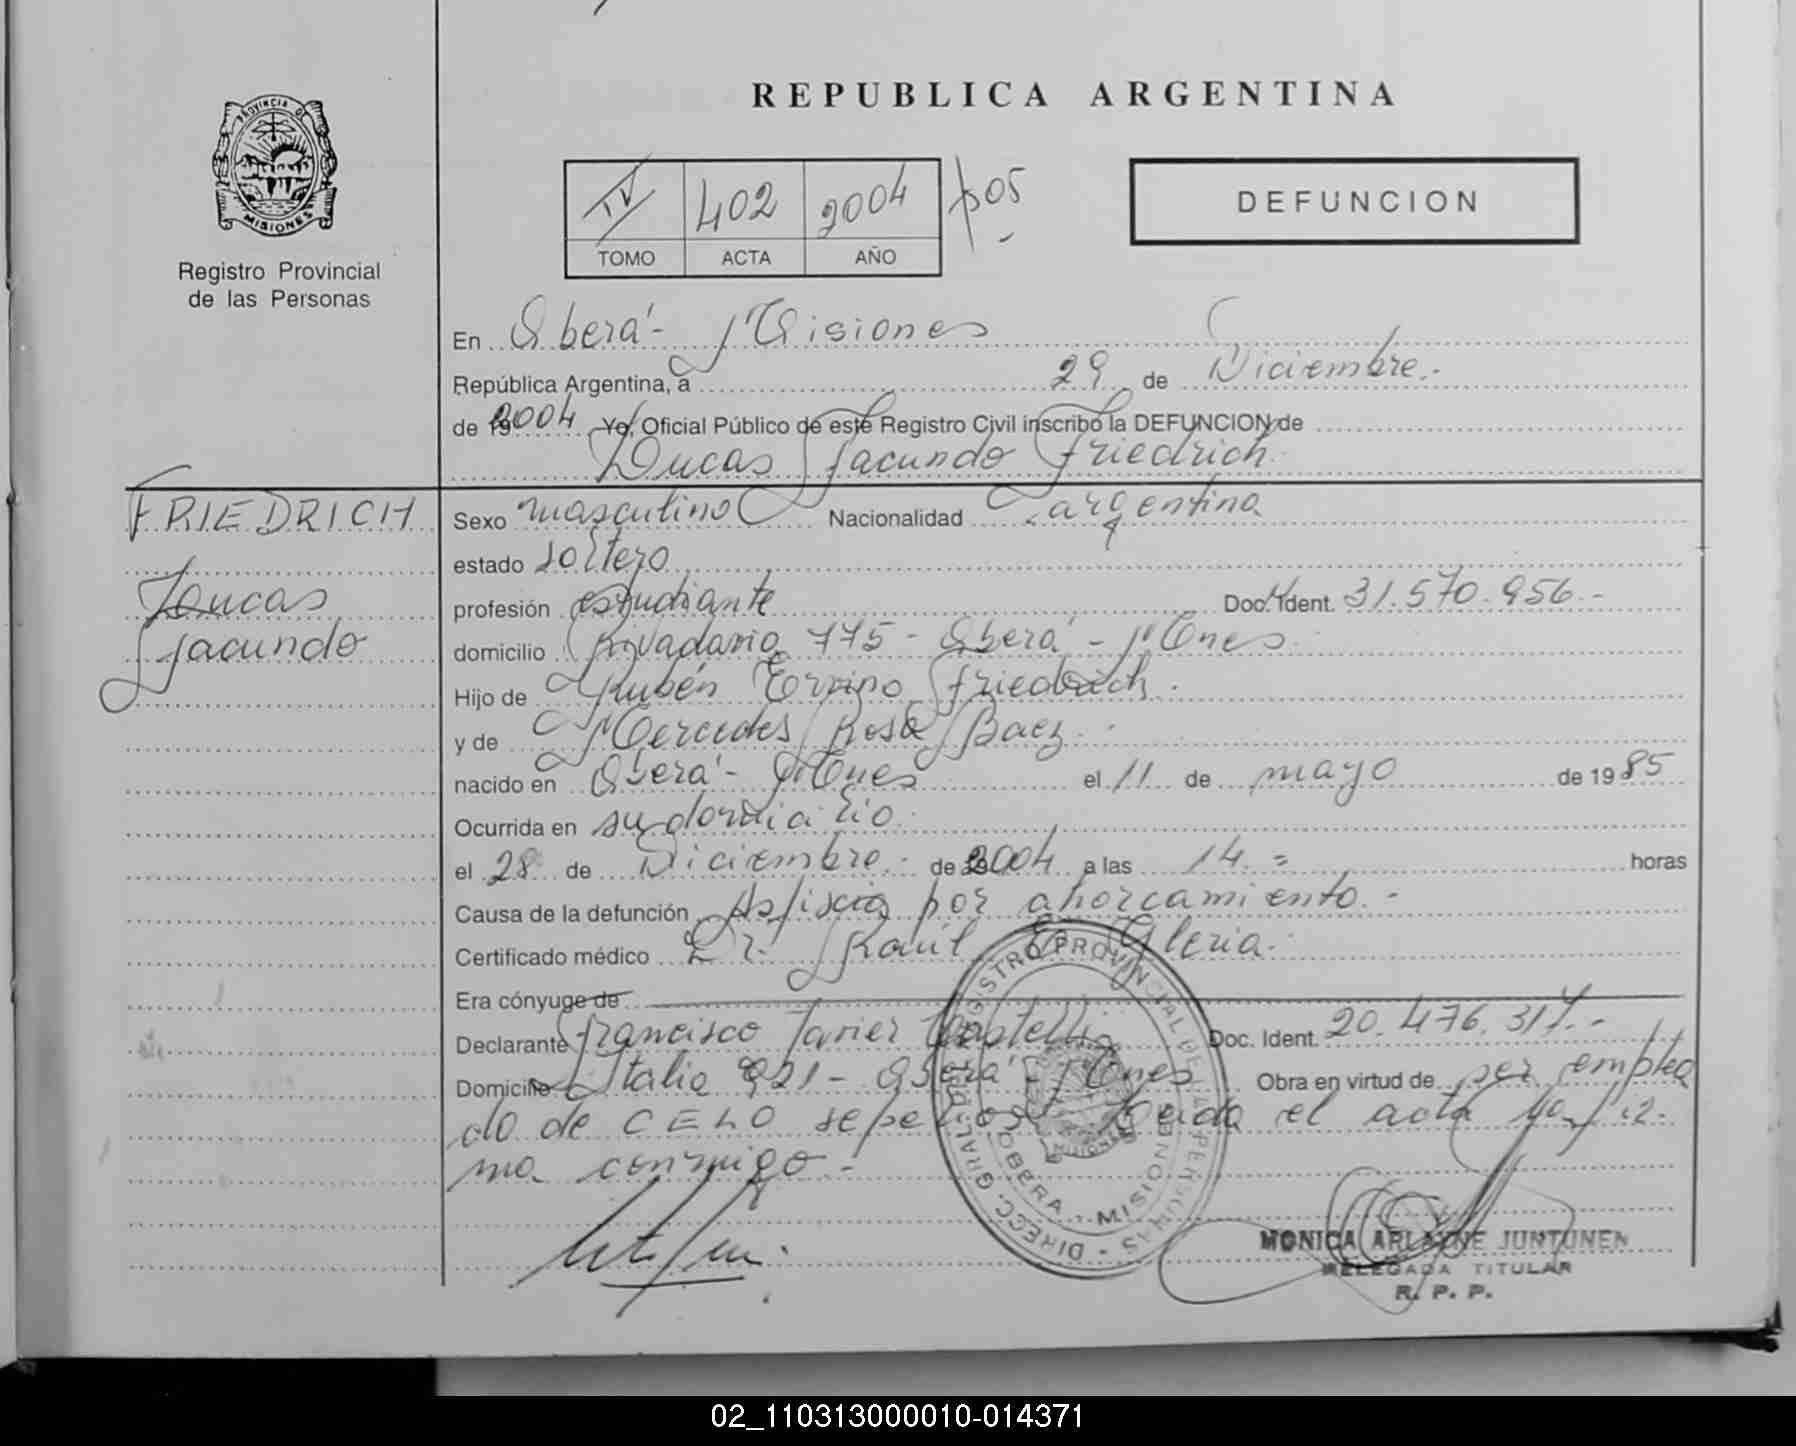 REPUBLICA ARGENTINA
PROVINCIA DE
MISIONES
Registro Provincial
de las Personas
IV 402 2004 505
TOMO ACTA AÑO
DEFUNCION
En Oberá - Misiones
República Argentina, a 29 de Diciembre.-
de 19 2004 Yo, Oficial Público de este Registro Civil inscribo la DEFUNCION de
Lucas Facundo Friedrich
FRIEDRICH
Lucas
Facundo
Sexo masculino Nacionalidad argentina
estado soltero
profesión estudiante Doc. Ident. 31.570.956.-
domicilio Rivadavia 775 - Oberá - Mnes
Hijo de Rubén Ervino Friedrich.
y de Mercedes Rosa Baez.
nacido en Oberá - Mnes el 11 de mayo de 1985
Ocurrida en su domicilio.
el 28 de Diciembre.- de 2004 a las 14.= horas
Causa de la defunción Asfixia por ahorcamiento.-
Certificado médico Dr. Raúl E. Gleria.
Era cónyuge de
Declarante Francisco Javier Doc. Ident. 20.476.317.-
Domicilio Italia 921 - Oberá - Mnes Obra en virtud de ser emplea
do de CELO sepelios. Leida el acta la fir-
ma conmigo.-
REGISTRO PROVINCIAL DE LAS PERSONAS - DIRECC. GRAL.
OBERA - MISIONES
MONICA ARLAINE JUNTUNEN
DELEGADA TITULAR
R. P. P.
02_110313000010-014371